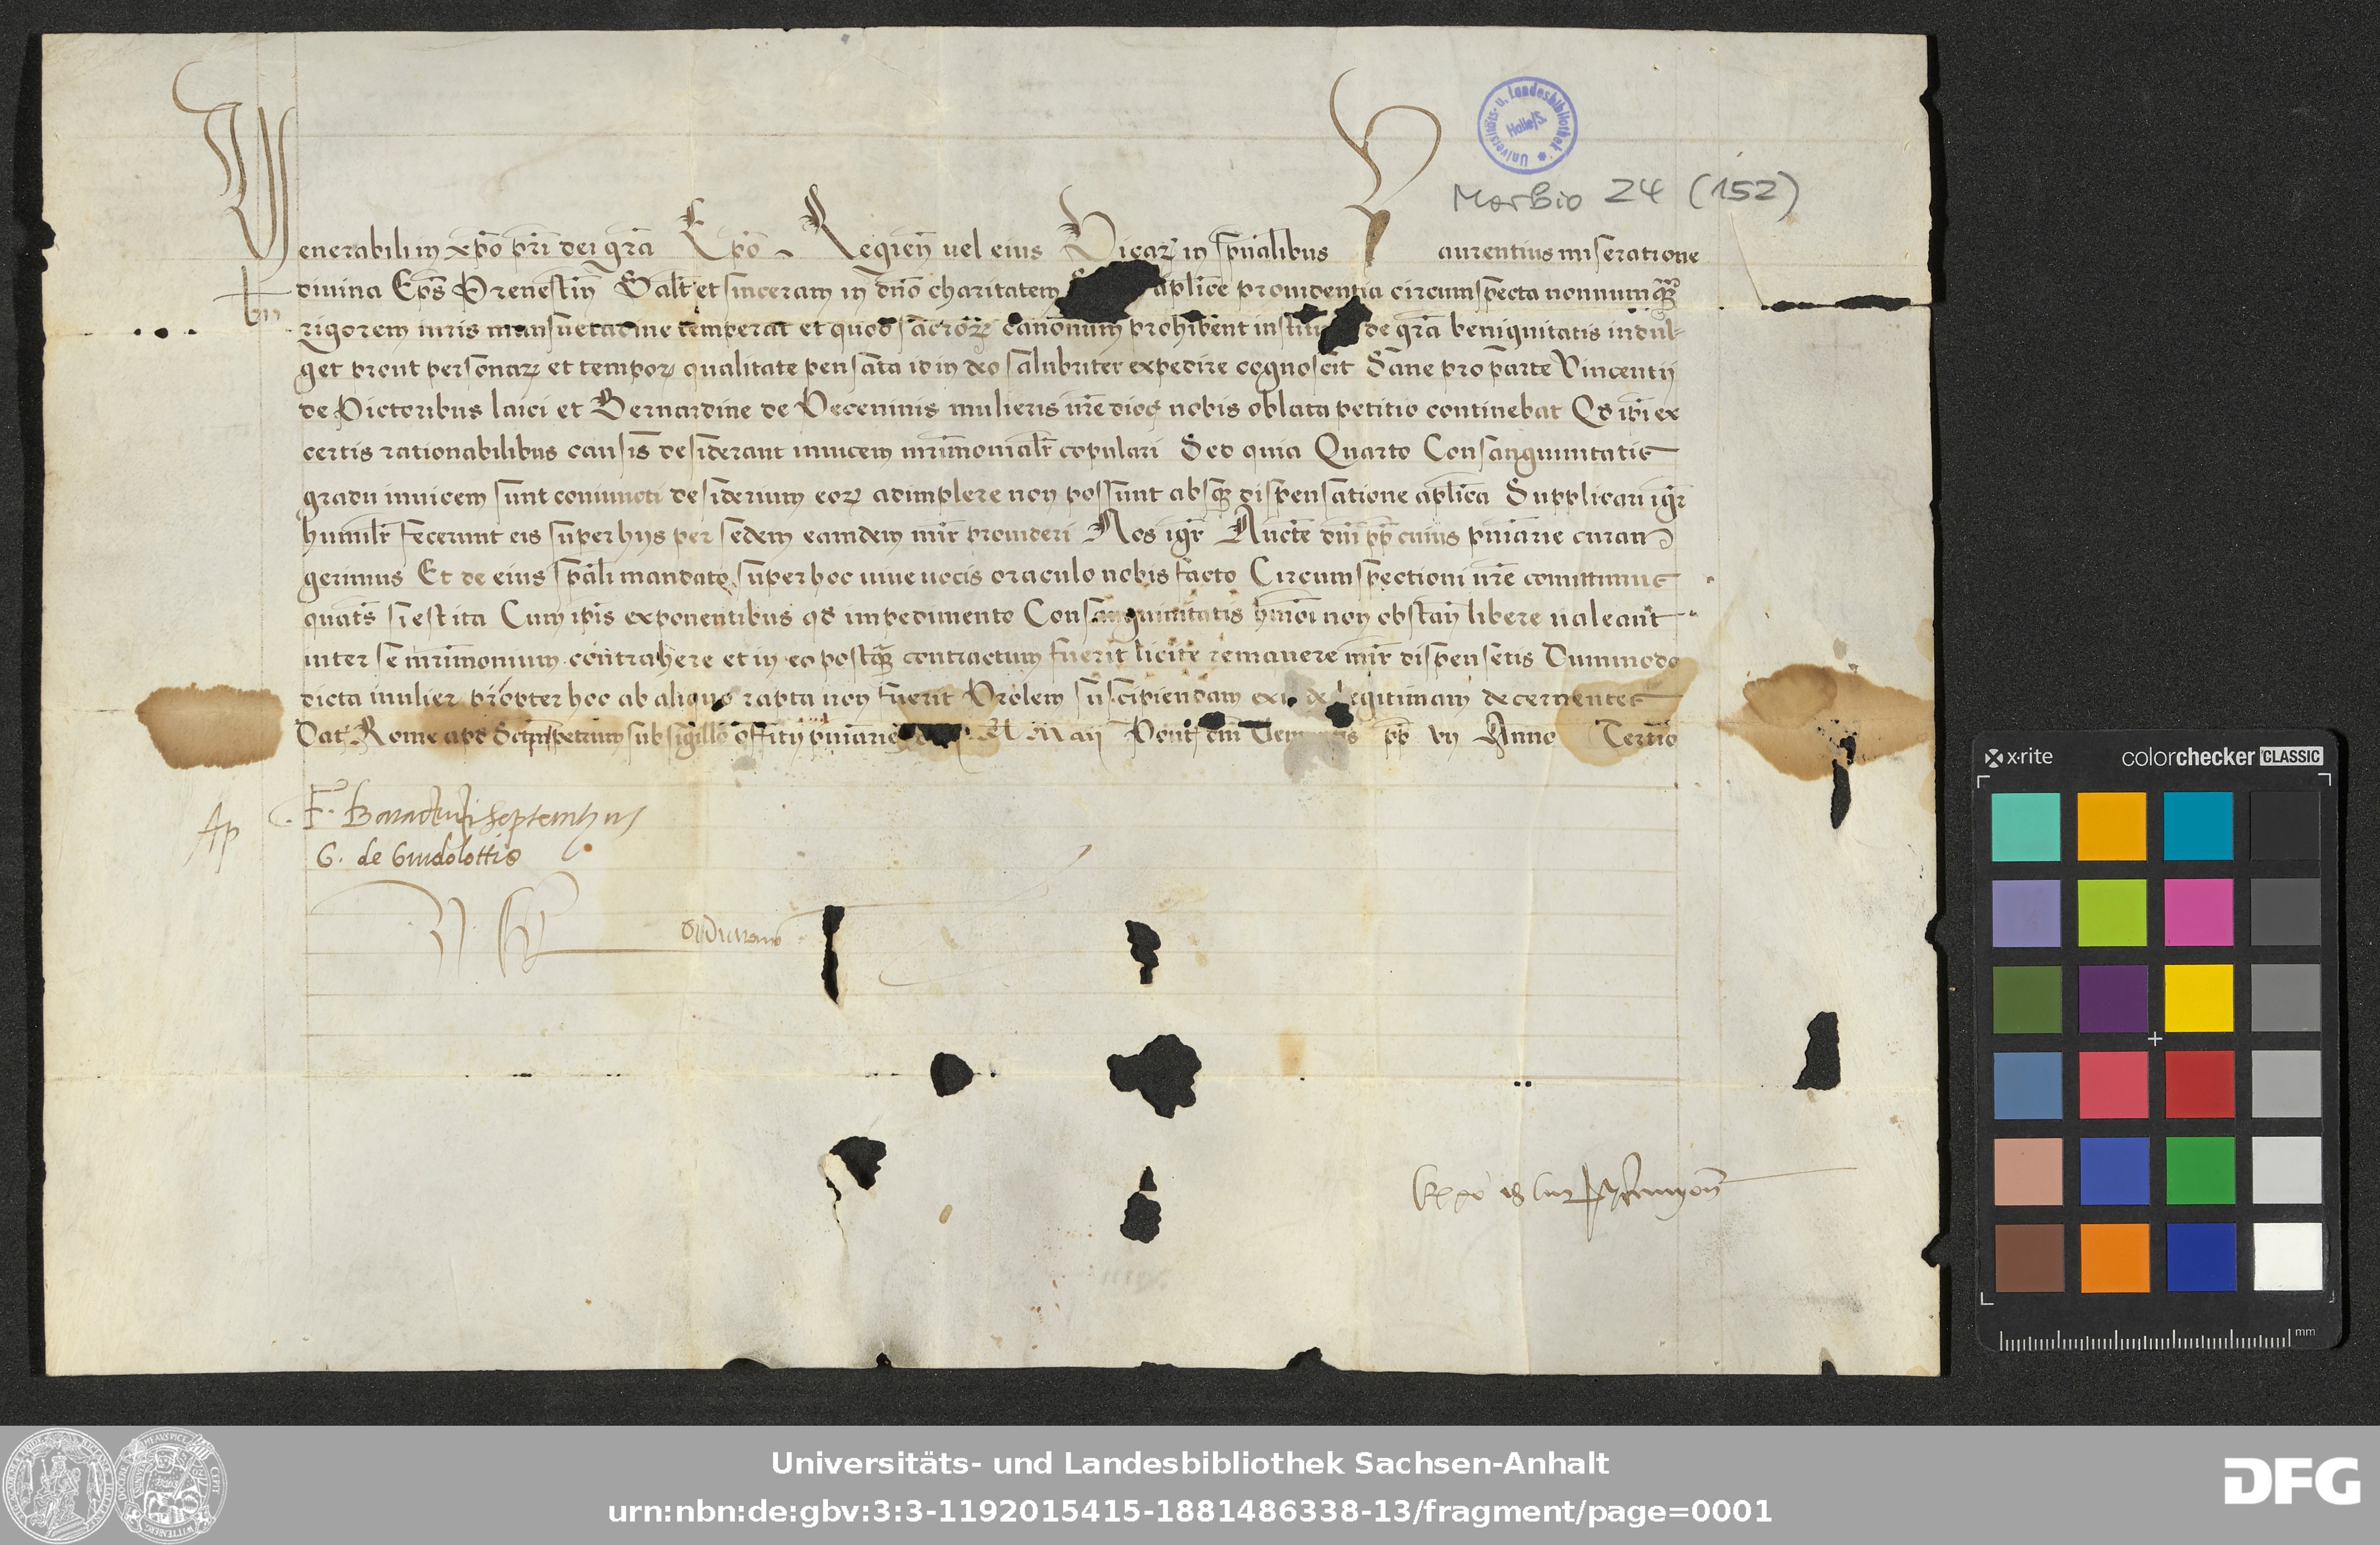 Universitäts- u. Landesbibliothek
Halle/S.
Morbio 24 (152)
Venerabili in xpo pri dei gra Epo Regien vel eius Vicar in spualibus Laurentius miseratione
divina Eps Prenestin Salt et sinceram in dno charitatem aplice providentia circumspecta nonnumq
rigorem iuris mansuetudine temperat et quod sacror canonum prohibent de gra benignitatis indul-
get prout personar et tempor qualitate pensata id in deo salubriter expedire cognoscit Sane pro parte Vincentii
de Pictoribus laici et Bernardine de Peceninis mulieris vre dioc nobis oblata petitio continebat Qd ipi ex
certis rationabilibus causis desiderant invicem mrimonialr copulari Sed quia Quarto Consanguinitatis
gradu invicem sunt coniuncti desiderium eor adimplere non possunt absq dispensatione aplica Supplicari igr
humilr fecerunt eis super hys per sedem eamdem mir provideri Nos igr Aucte dni pp cuius pniarie curam
gerimus Et de eius spali mandato super hoc vive vocis oraculo nobis facto Circumspectioni vre comittimus
quats si est ita Cum ipis exponentibus qd impedimento Consanguinitatis hmoi non obstan libere valeant
inter se mrimonium contrahere et in eo postq contractum fuerit licite remanere mir dispensetis Dummodo
dicta mulier propter hoc ab aliquo rapta non fuerit Prolem suscipiendam legitimam decernentes
Dat Rome apd Sctmpetrum sub sigillo offitii pniarie Maii Pont dni Clementis pp vii Anno Tertio
Ap
G. de Guidolottis
x·rite
colorchecker CLASSIC
mm
Universitäts- und Landesbibliothek Sachsen-Anhalt
urn:nbn:de:gbv:3:3-1192015415-1881486338-13/fragment/page=0001
DFG